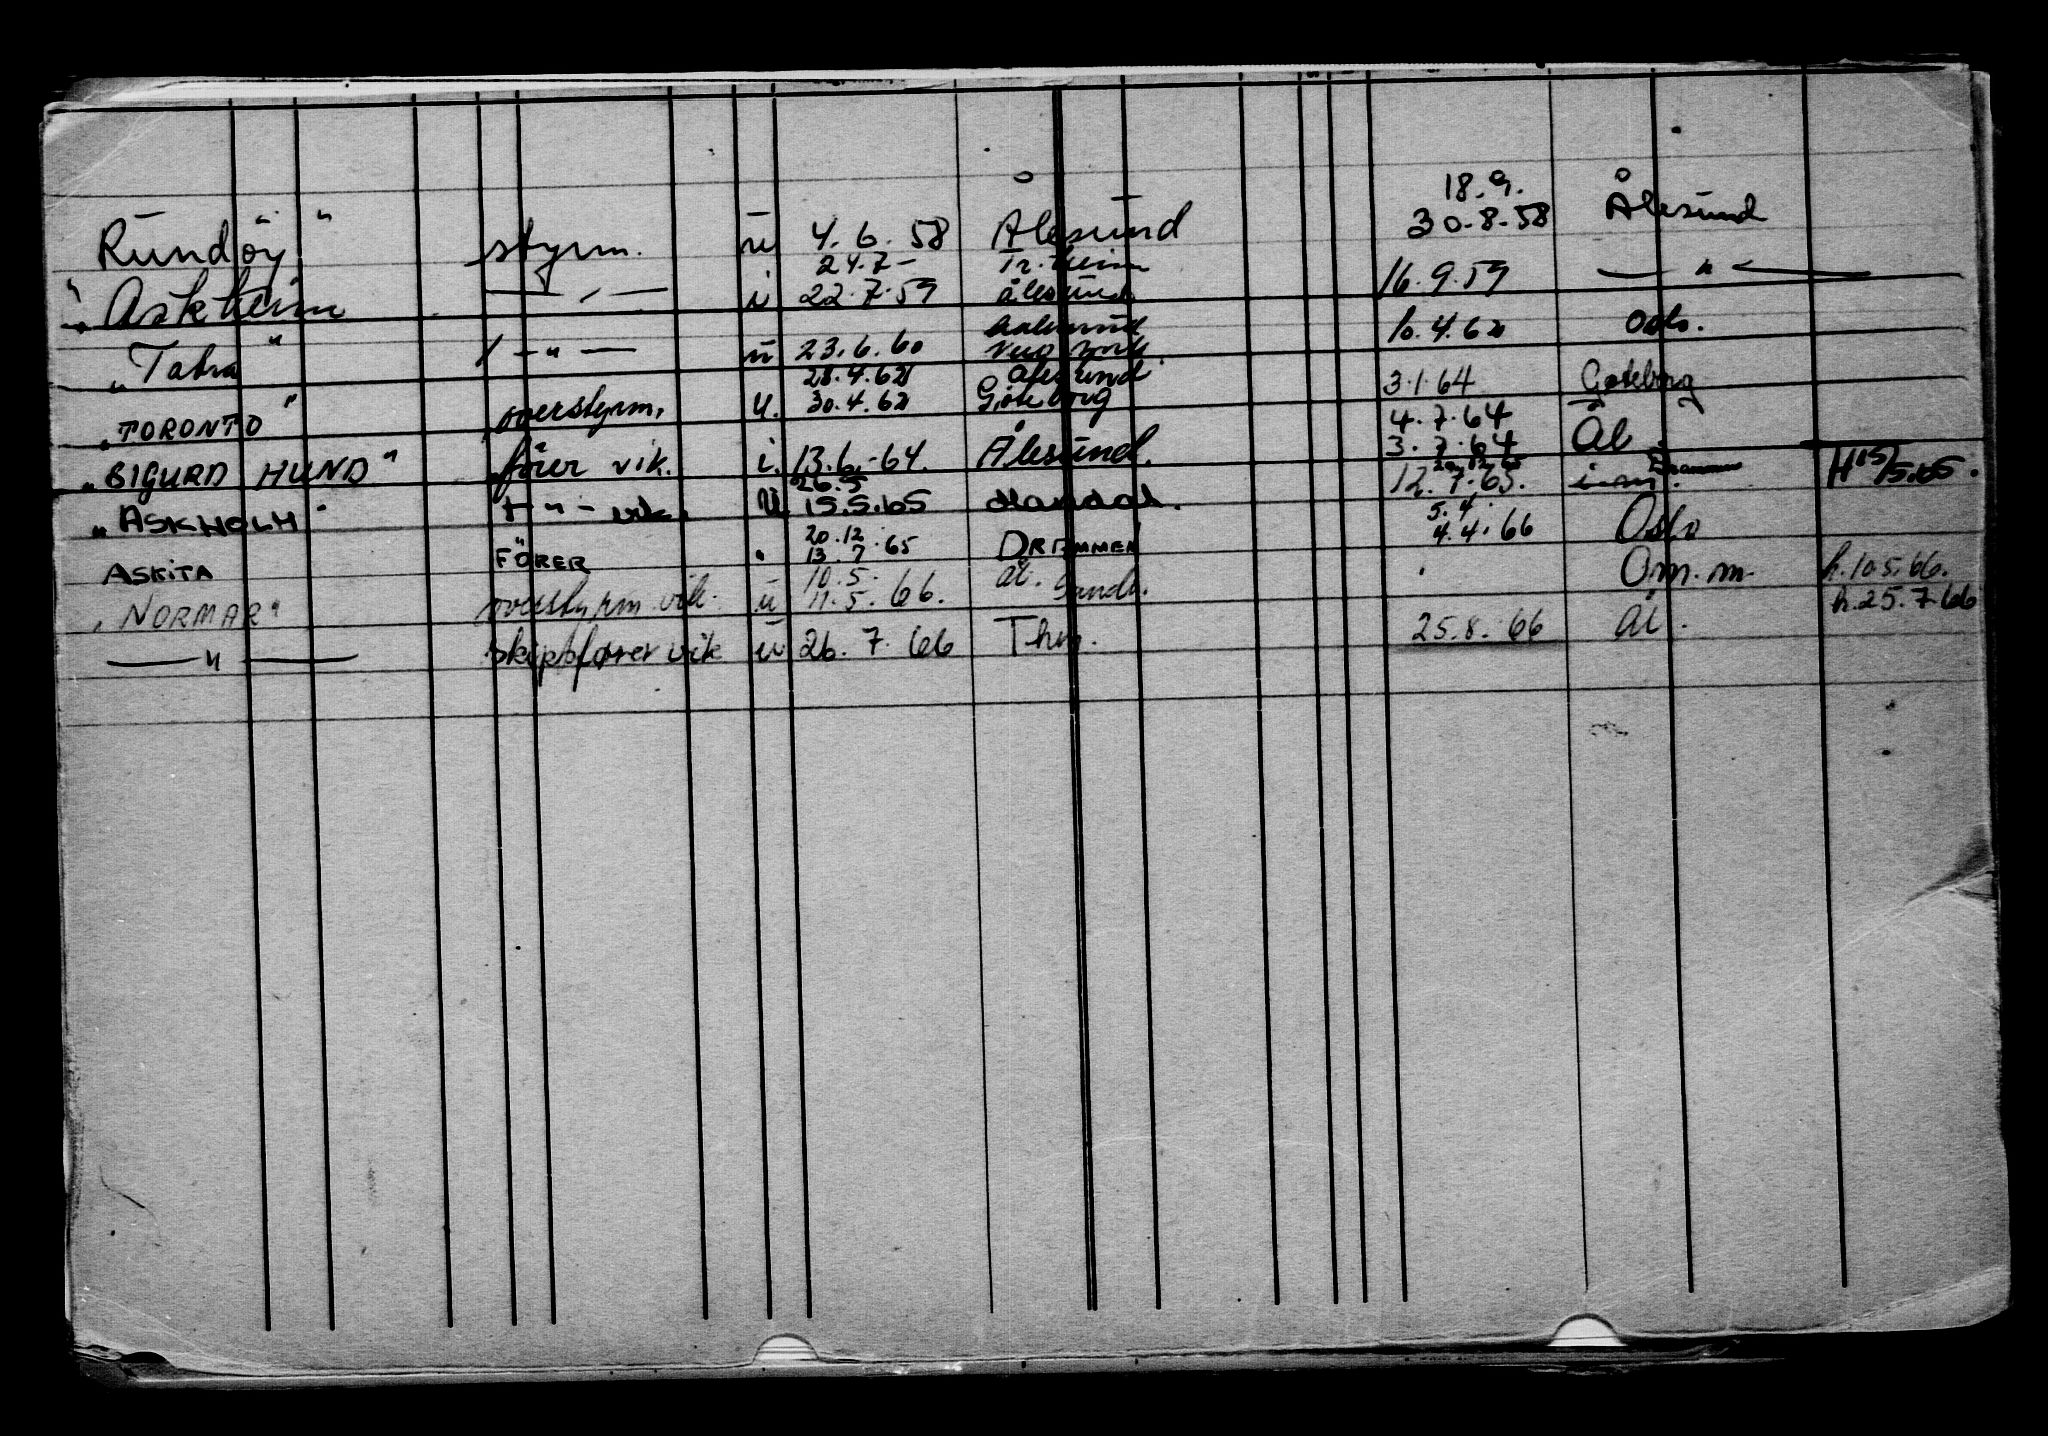 18.9.
"Rundöy" styrm. u 4.6.58 Ålesund 30-8-58 Ålesund
24.7- Tr.heim
"Askheim" — " — u 22.7.59 Ålesund 16.9.59 — " —
Aalesund
"Tabra" — " — u 23.6.60 New York 10.4.62 Oslo.
28.4.62 Ålesund
"TORONTO" overstyrm. u. 30.4.62 Göteborg 3.1.64 Göteborg
4.7.64
"SIGURD HUND" förer vik. i. 13.6.-64. Ålesund. 3.7.64 Ål.
26.5 20.12.65 Drammen
"ASKHOLM" — " — vik. u 15.5.65 Mandal. 12.7.65. H 15/5.65.
20.12 5.4.
ASKITA FÖRER " 13.7.65 DRAMMEN 4.4.66 Oslo
10.5. Ål.
"NORMAR" overstyrm. vik. u 11.5.66. Sunds. Om. m. h.10.5.66.
h.25.7.66
— " — skipsförer vik u 26.7.66 Thm. 25.8.66 Ål.